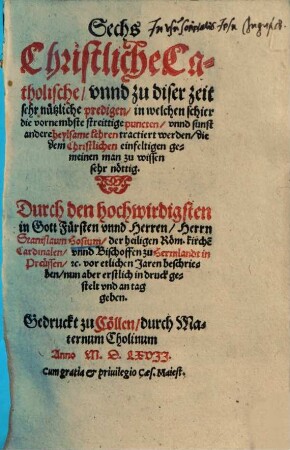 Sechs
Christliche Ca-
tholische / vnnd zu diser zeit
sehr nützliche predigen / in welchen schier
die vornembste streittige puncten / vnnd sunst
andere heylsame lehren tractiert werden / die
dem Christlichen einfeltigen ge-
meinen man zu wissen
sehr nöttig.
Durch den hochwirdigsten
in Gott Fürsten vnnd Herren / Herrn
Stanislaum Hosium / der heiligen Röm. kirchē
Cardinalen / vnnd Bischoffen zu Ermlandt in
Preüssen / ꝛc. vor etlichen Jaren beschrie-
ben / nun aber erstlich in druck ge-
stelt vnd an tag
geben.
Gedruckt zu Cöllen / durch Ma-
ternum Cholinum
Anno M. D. LXVII.
Cum gratia & priuilegio Cæs. Maiest.